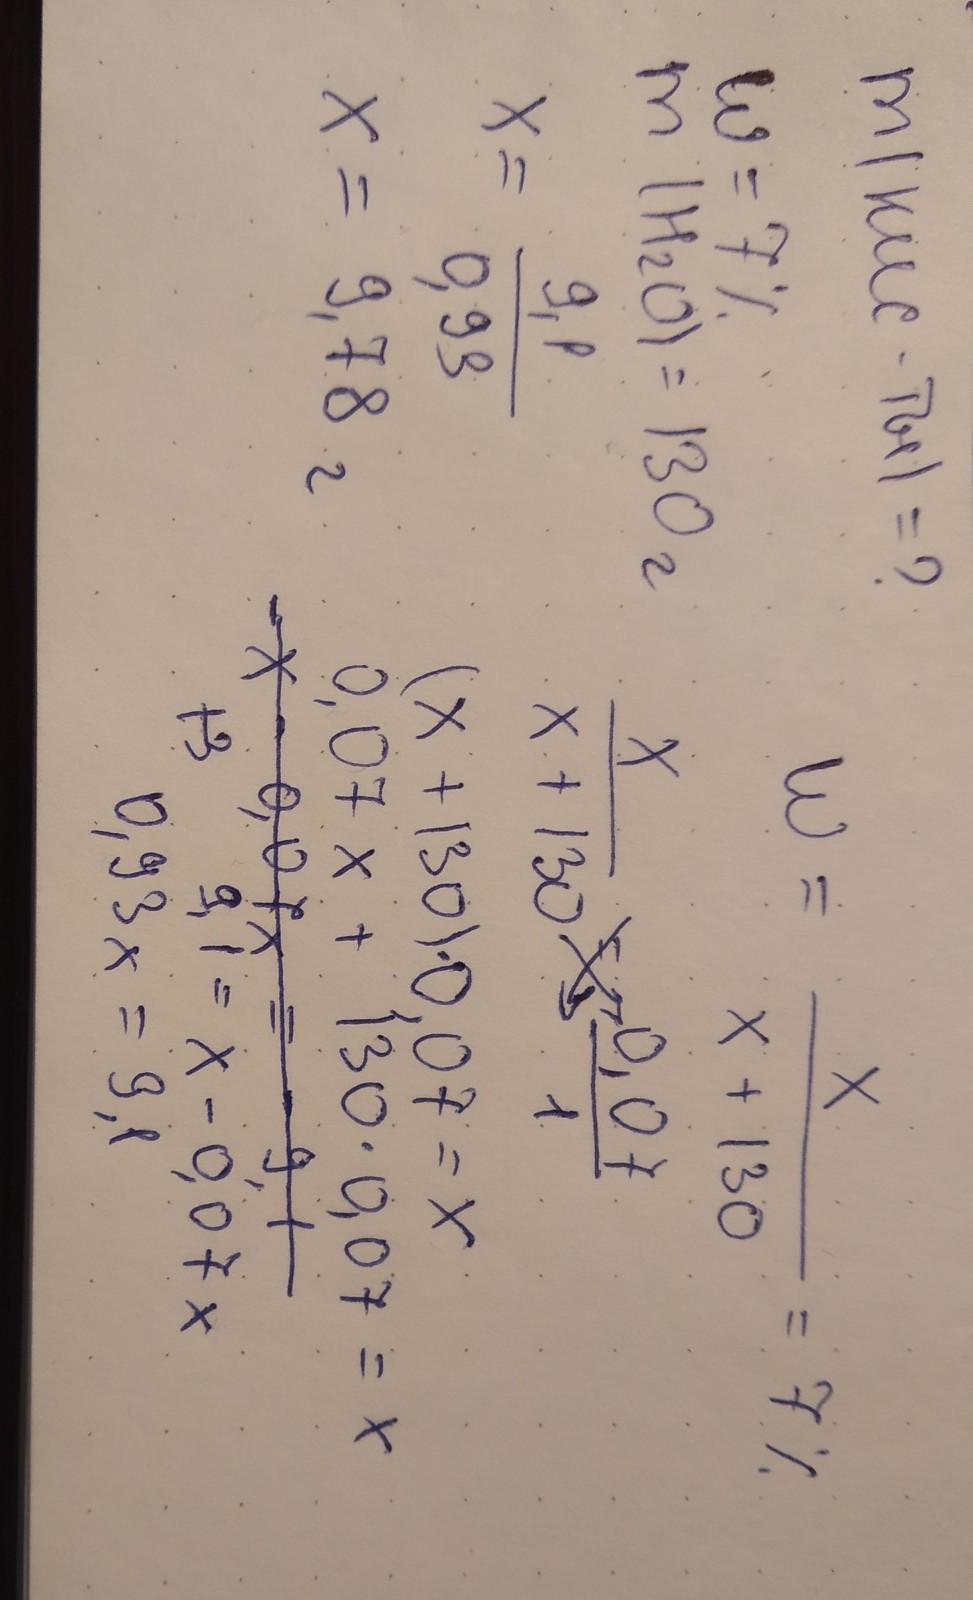 m(кис-ты)=?
w = 7%
m (H₂O) = 130 г
x = 9,1/0,93
x = 9,78 г
w = x/(x + 130) = 7%
x/(x + 130) 0,07/1
(x + 130)·0,07 = x
0,07 x + 130·0,07 = x
x - 0,07x = - 9,1
9,1 = x - 0,07x
0,93x = 9,1